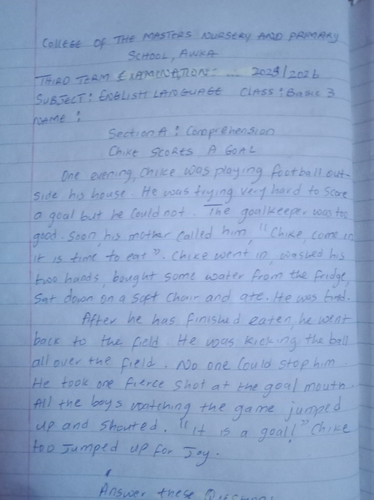 COLLEGE OF THE MASTERS NURSERY AND PRIMARY
SCHOOL, AWKA
THIRD TERM EXAMINATION: ... 2025/2026
SUBJECT: ENGLISH LANGUAGE CLASS: Basic 3
NAME:
Section A: Comprehension
CHIKE SCORES A GOAL
One evening, Chike was playing football out-
side his house. He was trying very hard to score
a goal but he could not. The goalkeeper was too
good. Soon, his mother called him, "Chike, come in
it is time to eat". Chike went in, washed his
two hands, bought some water from the fridge,
Sat down on a soft chair and ate. He was tired.
After he has finished eaten, he went
back to the field. He was kicking the ball
all over the field. No one could stop him.
He took one fierce shot at the goal mouth.
All the boys watching the game jumped
up and shouted. "it is a goal!" Chike
too Jumped up for Joy.
Answer these Questions